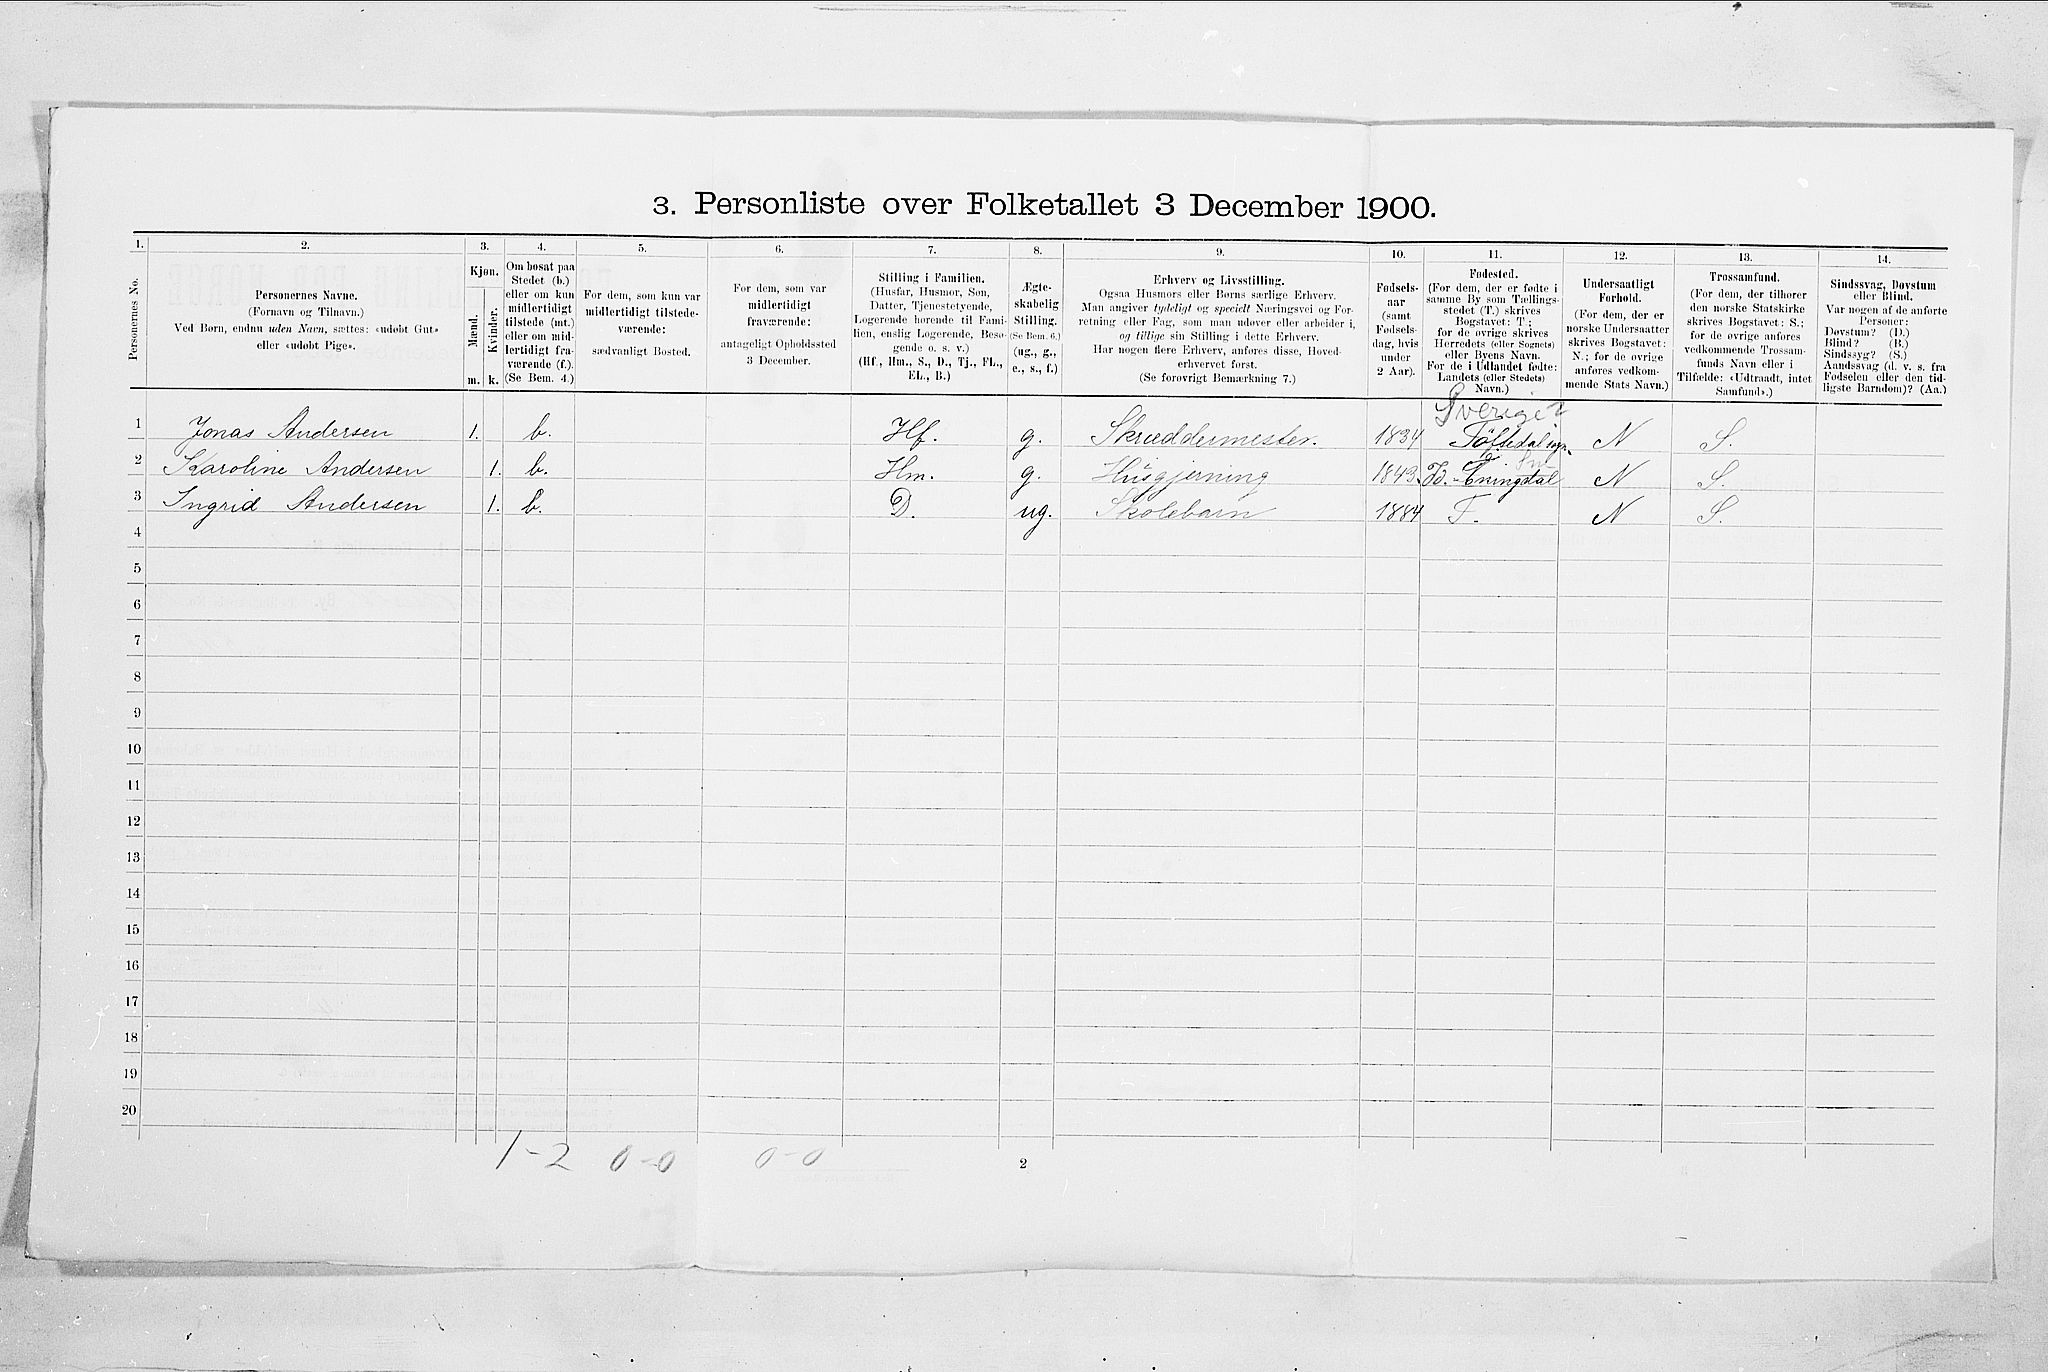 3. Personliste over Folketallet 3 December 1900.
1. 2. 3. 4. 5. 6. 7. 8. 9. 10. 11. 12. 13. 14.
Personernes No.
Personernes Navne.
(Fornavn og Tilnavn.)
Ved Børn, endnu uden Navn, sættes: «udøbt Gut»
eller «udøbt Pige».
Kjøn.
Mænd.
Kvinder.
m. k.
Om bosat paa
Stedet (b.)
eller om kun
midlertidigt
tilstede (mt.)
eller om mid-
lertidigt fra-
værende (f.).
(Se Bem. 4.)
For dem, som kun var
midlertidigt tilstede-
værende:
sædvanligt Bosted.
For dem, som var
midlertidigt
fraværende:
antageligt Opholdssted
3 December.
Stilling i Familien.
(Husfar, Husmor, Søn,
Datter, Tjenestetyende,
Logerende hørende til Fami-
lien, enslig Logerende, Besø-
gende o. s. v.)
(Hf., Hm., S., D., Tj., FL.,
EL., B.)
Ægte-
skabelig
Stilling.
(Se Bem. 6.)
(ug., g.,
e., s., f.)
Erhverv og Livsstilling.
Ogsaa Husmors eller Børns særlige Erhverv.
Man angiver tydeligt og specielt Næringsvei og For-
retning eller Fag, som man udøver eller arbeider i,
og tillige sin Stilling i dette Erhverv.
Har nogen flere Erhverv, anføres disse, Hoved-
erhvervet først.
(Se forøvrigt Bemærkning 7.)
Fødsels-
aar
(samt
Fødsels-
dag, hvis
under
2 Aar).
Fødested.
(For dem, der er fødte i
samme By som Tællings-
stedet (T.) skrives
Bogstavet: T.;
for de øvrige skrives
Herredets (eller Sognets)
eller Byens Navn.
For de i Udlandet fødte:
Landets (eller Stedets)
Navn.)
Undersaatligt
Forhold.
(For dem, der er
norske Undersaatter
skrives Bogstavet:
N.; for de øvrige
anføres vedkom-
mende Stats Navn.)
Trossamfund.
(For dem, der tilhører
den norske Statskirke
skrives Bogstavet: S.;
for de øvrige anføres
vedkommende Trossam-
funds Navn eller i
Tilfælde: «Udtraadt, intet
Samfund».)
Sindssvag, Døvstum
eller Blind.
Var nogen af de anførte
Personer:
Døvstum? (D.)
Blind? (B.)
Sindssyg? (S.)
Aandssvag (d. v. s. fra
Fødselen eller den tid-
ligste Barndom)? (Aa.)
Sverige
1 Jonas Andersen 1. b. Hf. g. Skræddermester. 1834 N S.
2 Karoline Andersen 1. b. Hm. g. Husgjerning 1843. Id. Eningdal N S.
3 Ingrid Andersen 1. b. D. ug. Skolebarn 1884 T. N S.
4
5
6
7
8
9
10
11
12
13
14
15
16
17
18
19
20
1-2 0-0 0-0
2